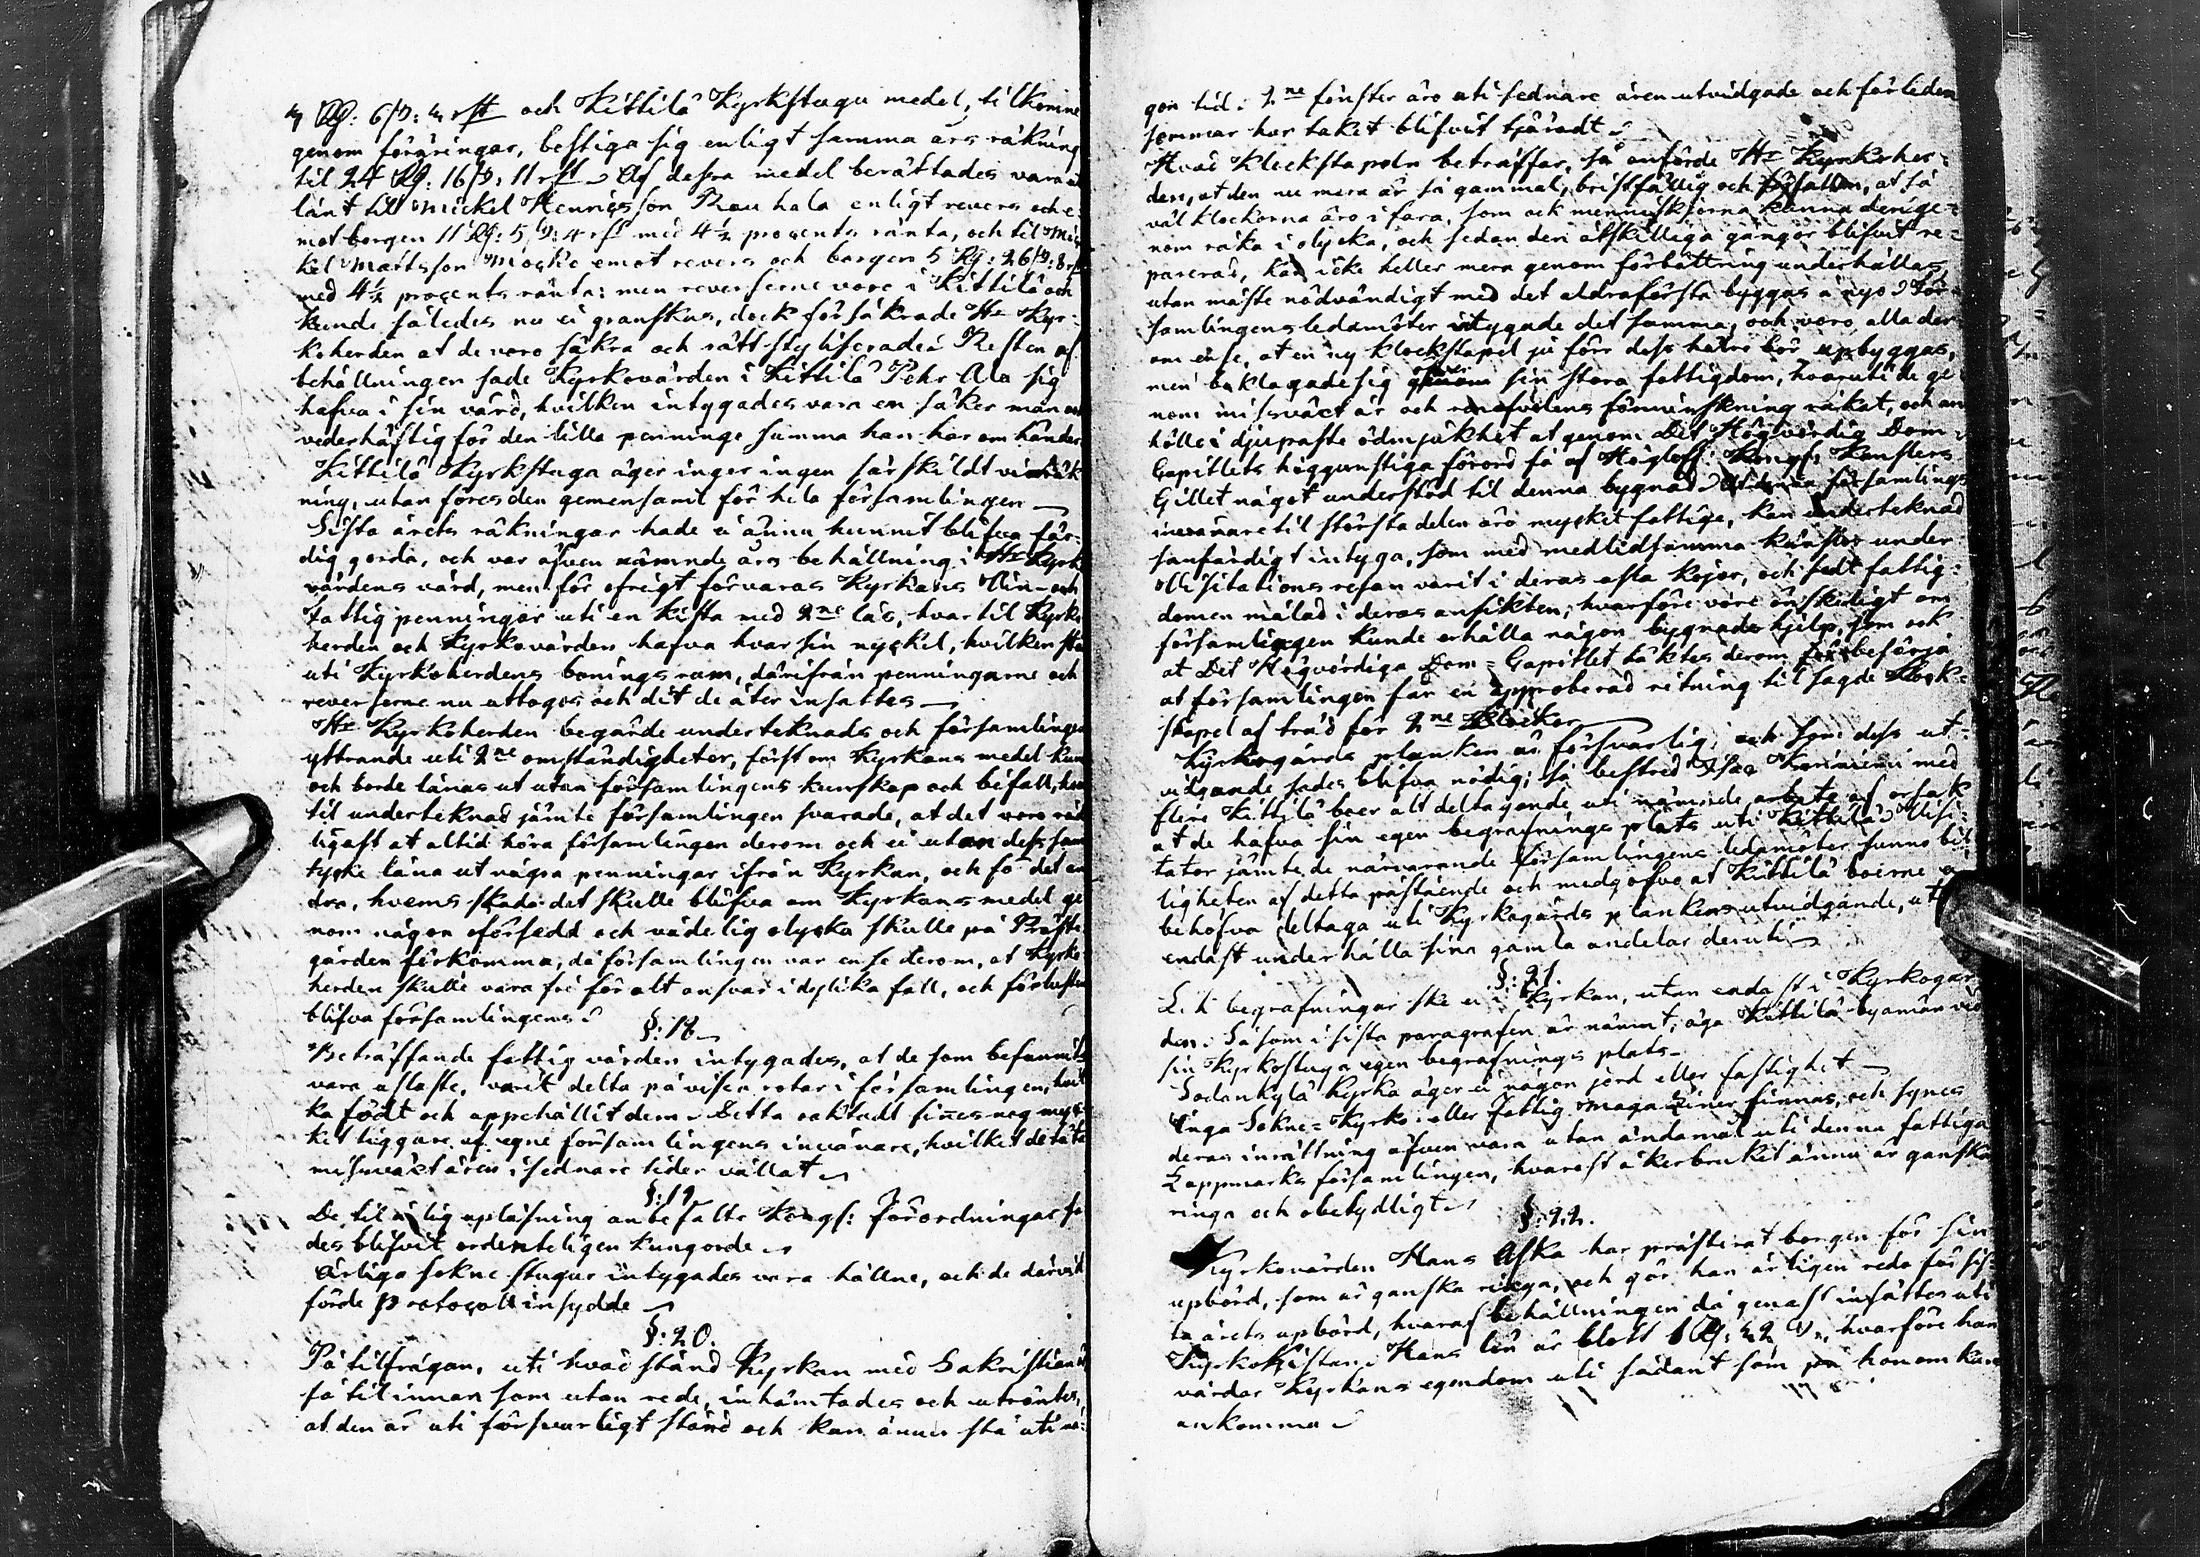 och Kittilä Kyrkstugu medel, tilkomne
genom föräringar, bestiga sig enligt samma års räkning
til 24 Rg: 16 ß: 11 rst Af dessa medel berättades vara
lånt til Mickel Henricsson Rauhala enligt revers och e-
mot borgen 11 Rg: 5 ß: 4 rst med 4½ procents ränta, och til Mic
kel Mattsson emot revers och borgen 5 Rg: 26 ß: 8 rst
med 4½ procents ränta: men reverserne vore i Kittilä och
kunde således nu ei granskas, dock försäkrade Hr Kyr-
koherden at de voro säkra och rätt styliserade. Resten af
behållningen sade Kyrkovärden i Kittilä Pehr Ala sig
hafva i sin vård, hvilken intygades vara en säker man och
vederhäftig för den lilla penninge summa han har om händer
Kittilä Kyrkstuga äger ingen särskildt vinräk
ning, utan föres den gemensamt för hela församlingen
Sista årets räkningar hade ei ännu hunnit blifva fär-
dig gorda, och var äfven nämnde års behållning i Hr Kyrk
värdens vård, men för öfrigt förvaras Kyrkans Vin- och
Fattig penningar uti en Kista med 2ne lås, hvartil Kyrko
herden och Kyrkovärden hafva hvar sin nyckel, hvilken stå
uti Kyrkoherdens bonings rum, därifrån penningarne och
reverserne nu uttogos och dit de åter insattes
Hr Kyrkoherden begärde undertecknads och församlingen
yttrande uti 2ne omständigheter, först om Kyrkans medel kun
och borde lånas ut utan församlingens kunskap och bifall, hvar
til undertecknad jämte församlingen svarade, at det voro råd
ligast at altid höra församlingen derom och ei utan dess sam
tycke låna ut någre penningar ifrån Kyrkan, och för det an
dra, hvems skada det skulle blifva om Kyrkans medel ge
nom någon oförsedd och vådelig olycka skulle på Präste
gården förkomma, då församlingen var ense derom, at Kyrko
herden skulle vara fri för alt ansvar i dylika fall, och förlusten
blifva församlingens.
§: 18
Beträffande fattig vården intygades, at de som befunnits
vara usla, varit delta på vissa rotar i församlingen, hvil
ka födt och uppehållit dem. Detta oaktadt fines nog myc-
ket tiggare af egne församlingens invånare, hvilket de täta
misväxt åren i sednare tider vållat
§: 19
De til årlig upläsning anbefalte Kongl: Förordningar sa
des blifvit ordenteligen kungorde
Årliga sokne stugur intygades vara hållne, och de därvid
förde Protocoll insydde
§: 20.
På tilfrågan, uti hvad stånd Kyrkan med Sakristian är
så til innan som utan rede, inhämtades och utröntes,
at den är uti försvarligt stånd och kan ännu stå uti nå-
gon tid. 2ne fönster äro uti sednare åren utvidgade och förleden
sommar har taket blifvit tjäradt
Hvad Klockstapeln beträffar, så anförde Hr Kyrkoher-
den, at den nu mera är så gammal, bristfällig och förfallen, at så
väl klockorna äro i fara, som ock menniskjorna kunna derige-
nom råka i olycka, och sedan den åtskilliga gångor blifvit re-
parerad, kan icke heller mera genom förbättring underhållas,
utan måste nödvändigt med det aldraförsta byggas å nyo. För-
samlingens ledamöter intygade det samma, och voro alla der-
om ense, at en ny klockstapel ju förr dess hälre bör upbyggas,
men beklagade sig öfver sin stora fattigdom, hvaruti de ge
nom misväxt år och renafvelens förminskning råkat, och an
hölle i djupaste ödmjukhet at genom Det Högvördig Dom-
Capitlets höggunstiga förord få af Höglofl: Kongl: Kanslers
Gillet något understöd til denna bygnad. At denna församlings
invånare til största delen äro mycket fattige, kan undertecknad
sanfärdigt intyga, som med medlidsamma känslor under
Visitations resan varit i deras usla kojor, och sedt fattig-
domen målad i deras ansikten; hvarföre vore önskeligt om
församlingen kunde erhålla någon bygnads hjelp, som ock
at Det Högvördiga Dom-Capitlet täktes derom besörja
at församlingen får en approberad ritning til sagde Klock-
stapel af träd för 2ne Klockor
Kyrkogårds planken är försvarlig, och som dess ut-
vidgande sades blifva nödig; så bestred Isac Kariniemi med
flere Kittilä boer alt deltagande uti nämnde arbete af orsak
at de hafva sin egen begrafnings plats uti Kittilä. Visi-
tator jämte de närvarande församlingens ledamöter funno bil-
ligheten af detta påstående och medgofvo at Kittilä boerne ei
behöfva deltaga uti Kyrkogårds plankens utvidgande, utan
endast underhålla sina gamla andelar deruti
§: 21.
Lik begrafningar ske ei i Kyrkan, utan endast i Kyrkogår
den. Såsom i sista paragrafen är nämnt, äga Kittilä byamän vid
sin Kyrkostuga egen begrafnings plats
Sodankylä Kyrka äger ei någon jord eller fastighet
Inga Sokne- Kyrko- eller Fattig Magaziner finnas, och synes
deras inrättning äfven vara utan ändamål uti denna fattiga
Lappmarks församlingen, hvarest åkerbruket ännu är ganska
ringa och obetydligt.
§: 22.
Kyrkovärden Hans Aska har præsterat borgen för sin
upbörd, som är ganska ringa, och gör han årligen reda för sis-
ta årets upbörd, hvaraf behållningen då genast insättes uti
Kyrkokistan. Hans lön är blott hvarföre han
vårdar Kyrkans egendom uti sådant som på honom kan
ankomma